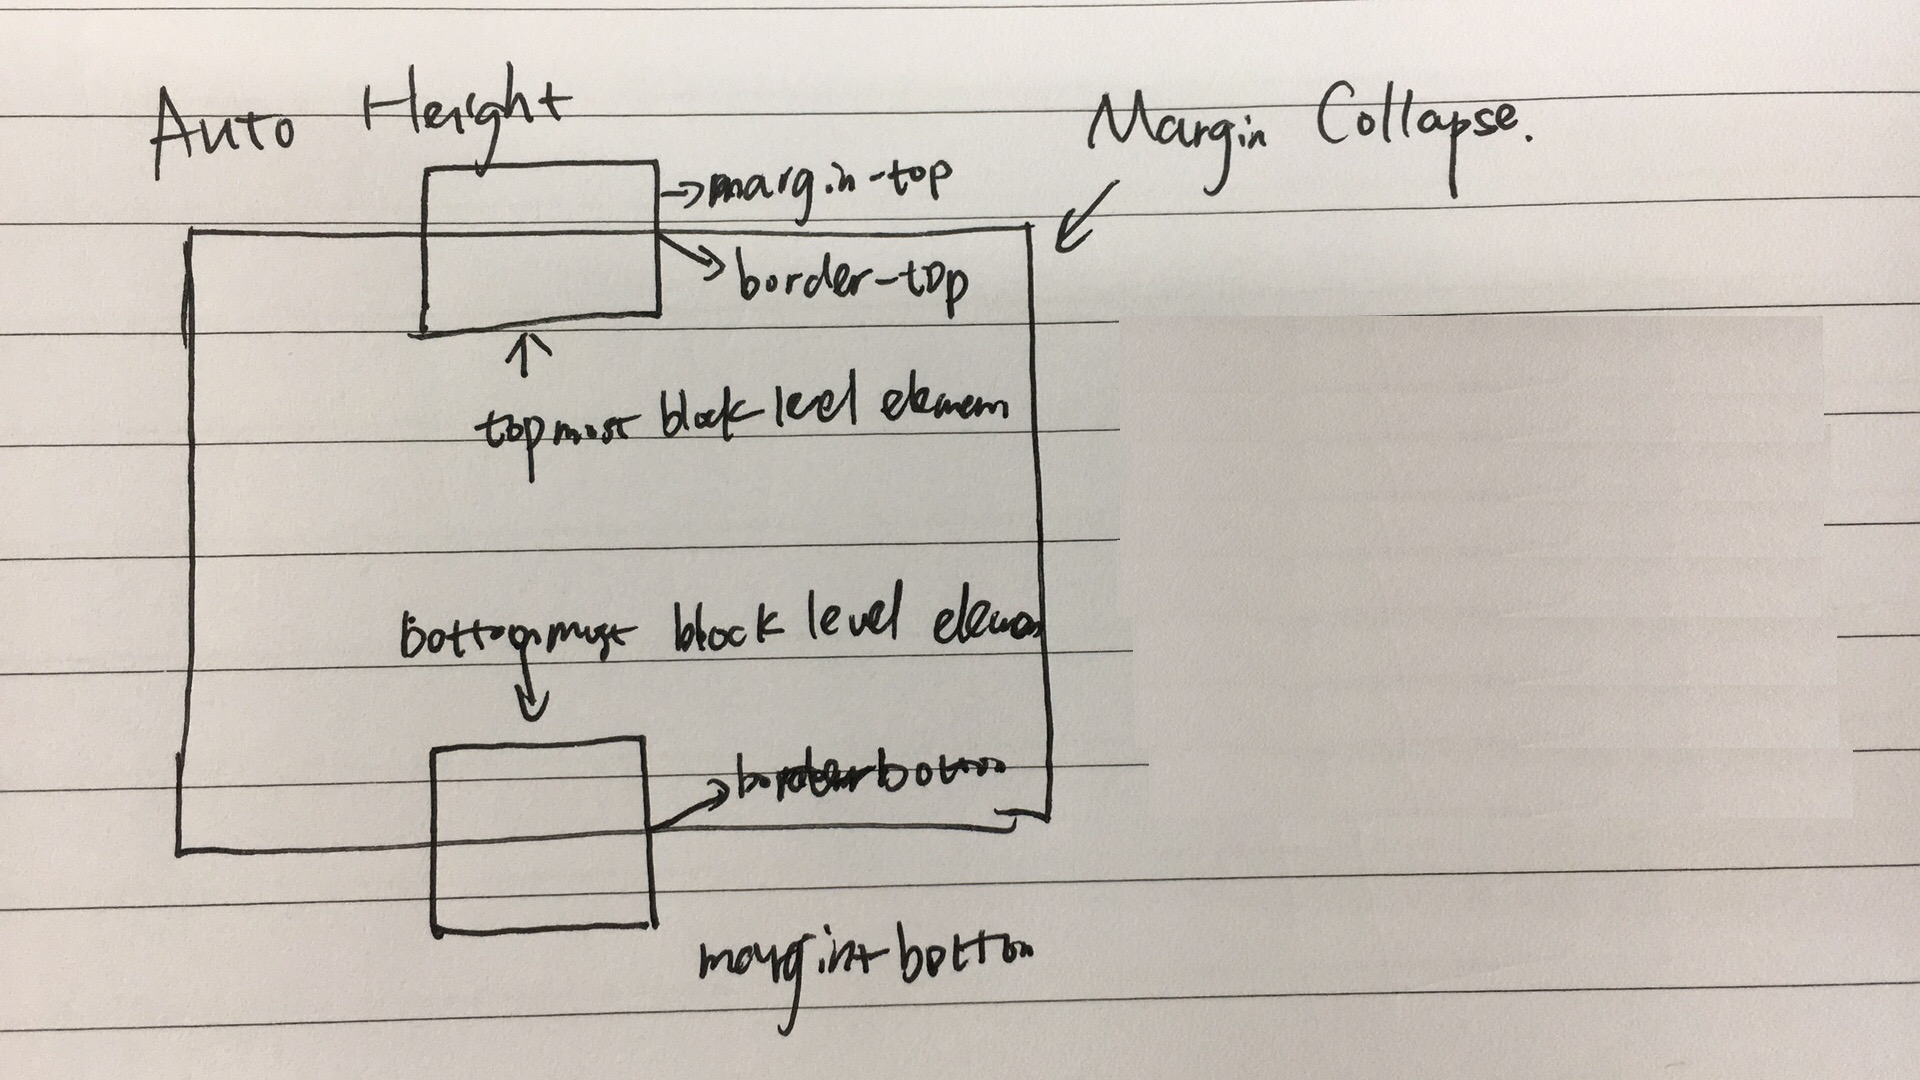 Auto Height
Margin Collapse.
margin-top
border-top
topmost block level elemem
bottommost block level elemen
border bottom
margin-bottom